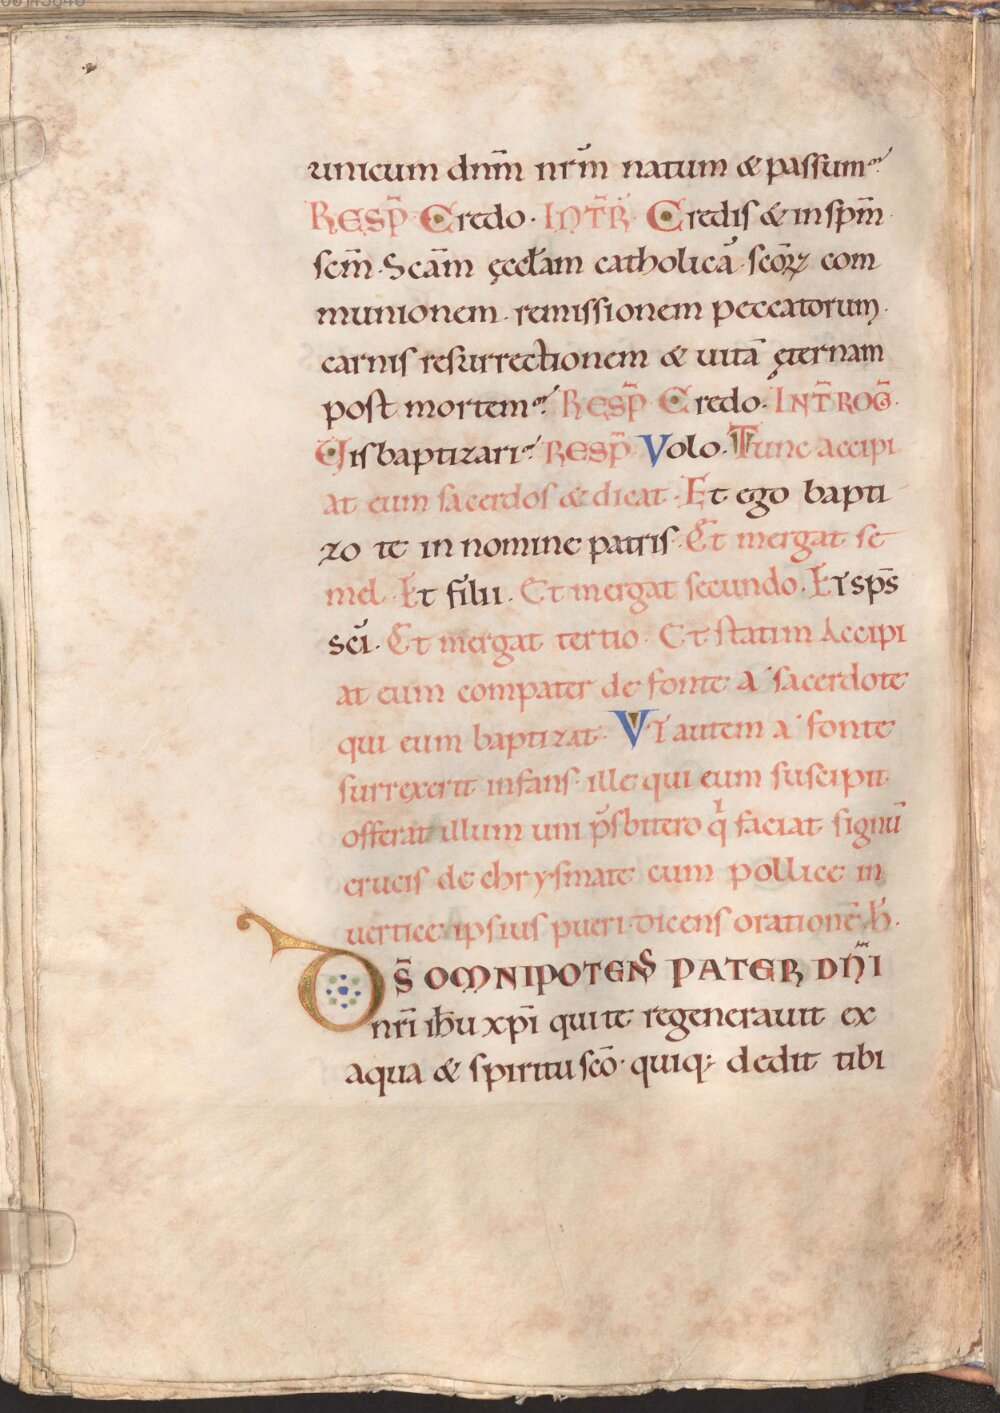 unicum dnm̄ nrm̄ natum & passum?
RESP̄ Credo. INT̄R̄. Credis & in spm̄
scm̄. Scām ęcclam catholicā. scōꝝ com
munionem. remissionem peccatorum.
carnis resurrectionem & uitā ęternam
post mortem? RESP̄ Credo. INT̄ROḠ.
Uis baptizari? RESP̄ Volo. Tunc accipi
at eum sacerdos & dicat. Et ego bapti
zo te in nomine patris. Et mergat se
mel. Et filii. Et mergat secundo. ET sps̄
sci̅. Et mergat tertio. Et statim Accipi
at eum compater de fonte a sacerdote
qui eum baptizat. VT autem a fonte
surrexerit infans. ille qui eum suscipit.
offerat illum uni p̄sbitero qͥ faciat signū
crucis de chrysmate cum pollice in
uertice ipsius pueri. dicens orationē. h̄.
DS̄ OMNIPOTENS PATER DN̄I
nr̄i ihū xpi̅ qui te regenerauit ex
aqua & spiritu scō. quiq; dedit tibi